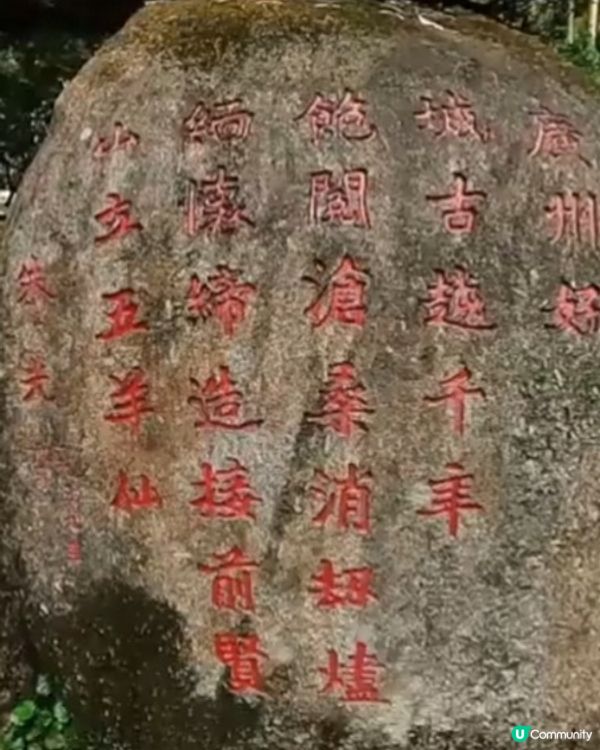 广州好
城古越千年
飽閱滄桑消劫燼
緬懷締造接前賢
山立五羊仙
朱光
U Community